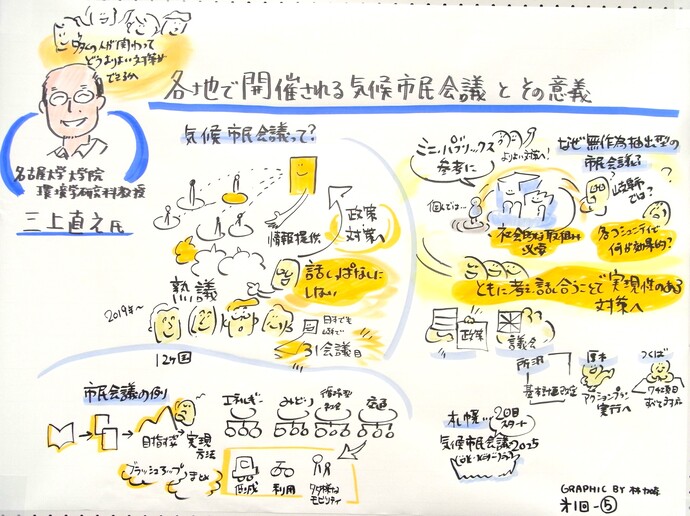 各地で開催される気候市民会議とその意義
人が関わって
どうよりよい対策が
できるか
名古屋大学大学院
環境学研究科教授
三上直之氏
気候市民会議って?
情報提供
政策
対策へ
熟議
話しっぱなしに
しない
2019年〜
12ヶ国
日本でも
31会議目
ミニ・パブリックス
参考に
よりよい対策へ!
個人では…
社会的な取組が
必要
なぜ無作為抽出型の
市民会議?
岐阜市
では?
各コミュニティで
何が効果的?
ともに考え話し合うことで実現性のある
対策へ
政策
議会
所沢
基本計画改定
厚木
アクションプラン
実行へ
つくば
札幌…
2回目
スタート
気候市民会議2025
市民会議の例
目指す姿
実現
方法
ブラッシュアップ
まとめ
エネルギー
みどり
循環型
社会
交通
低減
利用
多様な
モビリティ
GRAPHIC BY
第1回-⑤